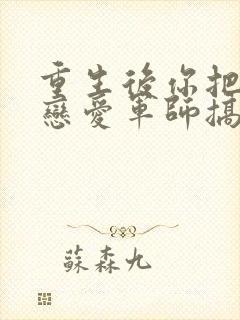 重生後你把
戀愛軍師搞
蘇森九